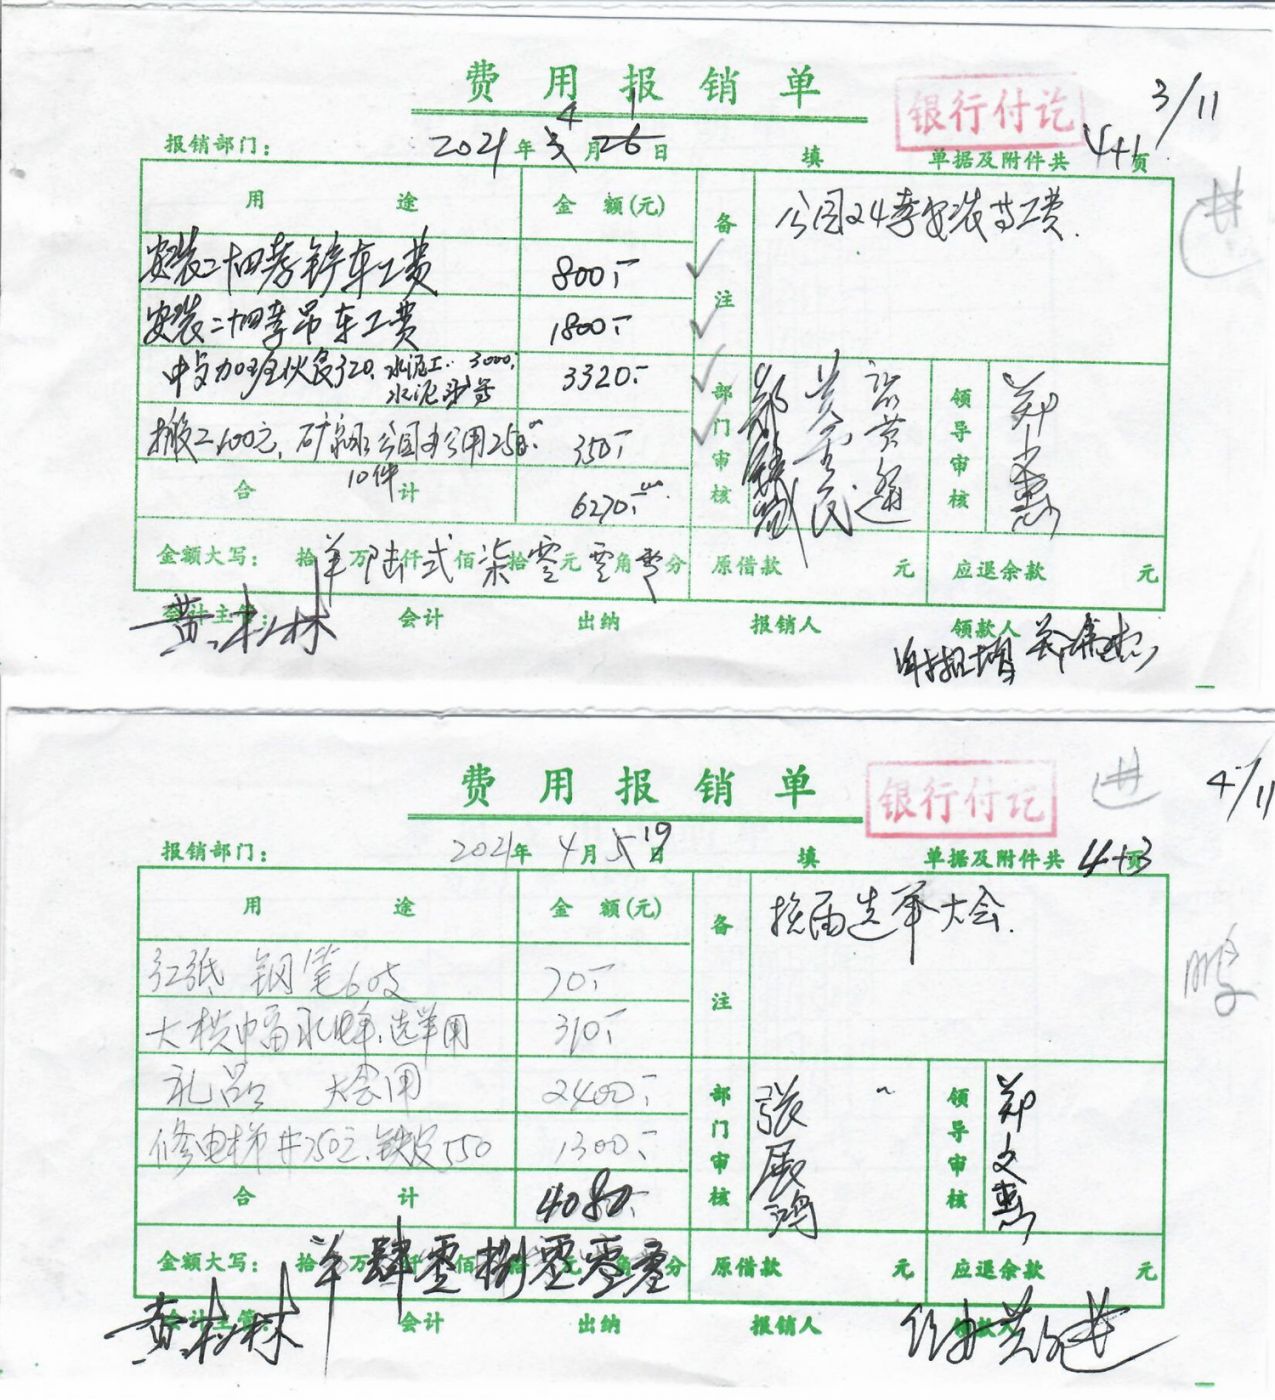 费用报销单
银行付讫
3/11
报销部门：
2021年4月1日
填
单据及附件共4+1页
用途
金额(元)
备注
公园24孝安装等工费.
安装二十四孝铲车工费
800.-
安装二十四孝吊车工费
1800.-
中午加班伙食320.水泥工..3000.
水泥沙等
3320.-
搬工100元,矿泉水公园办公用250.-
10件
350.-
合计
6270.-
部门审核
领导审核
郑文惠
金额大写：
拾万陆仟弍佰柒拾零元零角零分
原借款
元
应退余款
元
会计主管：
黄树林
会计
出纳
报销人
领款人
进
费用报销单
银行付讫
进
4/11
报销部门：
2021年4月19日
填
单据及附件共4+3页
用途
金额(元)
备注
换届选举大会.
红纸 钢笔60支
70.-
大横巾番禾埠.选举用
310.-
鹏
礼品 大会用
2400.-
修电梯井750元.铁皮550
1300.-
合计
4080.-
部门审核
张展鸿
领导审核
郑文惠
金额大写：
拾万肆仟零佰捌拾零元零角零分
原借款
元
应退余款
元
会计主管：
黄树林
会计
出纳
报销人
领款人